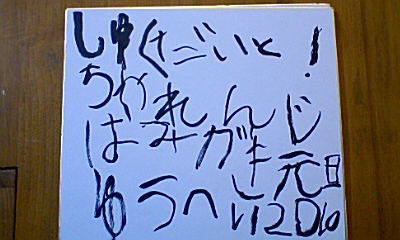 しゆくだいと!
ちゃれんじ
はみがき元日
ゆうへい2010